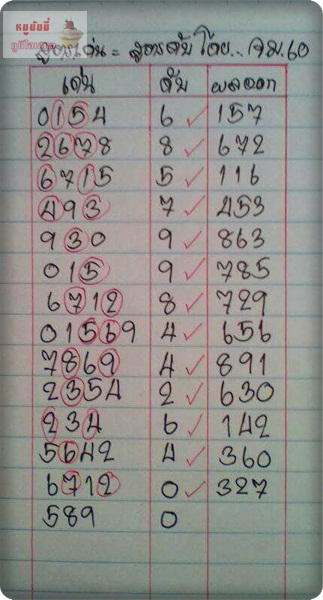 หมูบัดซี่
สูตรเด่น = สูตรดับ โดย.. จม.60
เด่น ดับ ผลออก
0154 6 ✓ 157
2678 8 ✓ 672
6715 5 ✓ 116
493 7 ✓ 453
930 9 ✓ 863
015 9 ✓ 785
6712 8 ✓ 729
01569 4 ✓ 656
7869 4 ✓ 891
2354 2 ✓ 630
234 6 ✓ 142
5642 4 ✓ 360
6712 0 ✓ 327
589 0